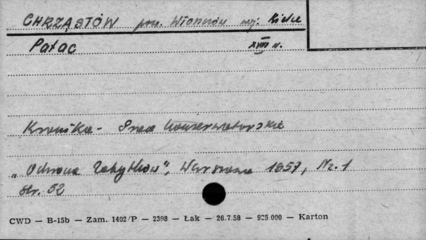 CHRZĄSTÓW pow. Włoszczowa woj. Kielce
Pałac XVIII w.
Kronika - Prace Konserwatorskie
„Ochrona Zabytków", Warszawa 1957, Nr. 1
str. 52
CWD — B-15b — Zam. 1402/P — 2398 — Łak — 26.7.58 — 925 000 — Karton